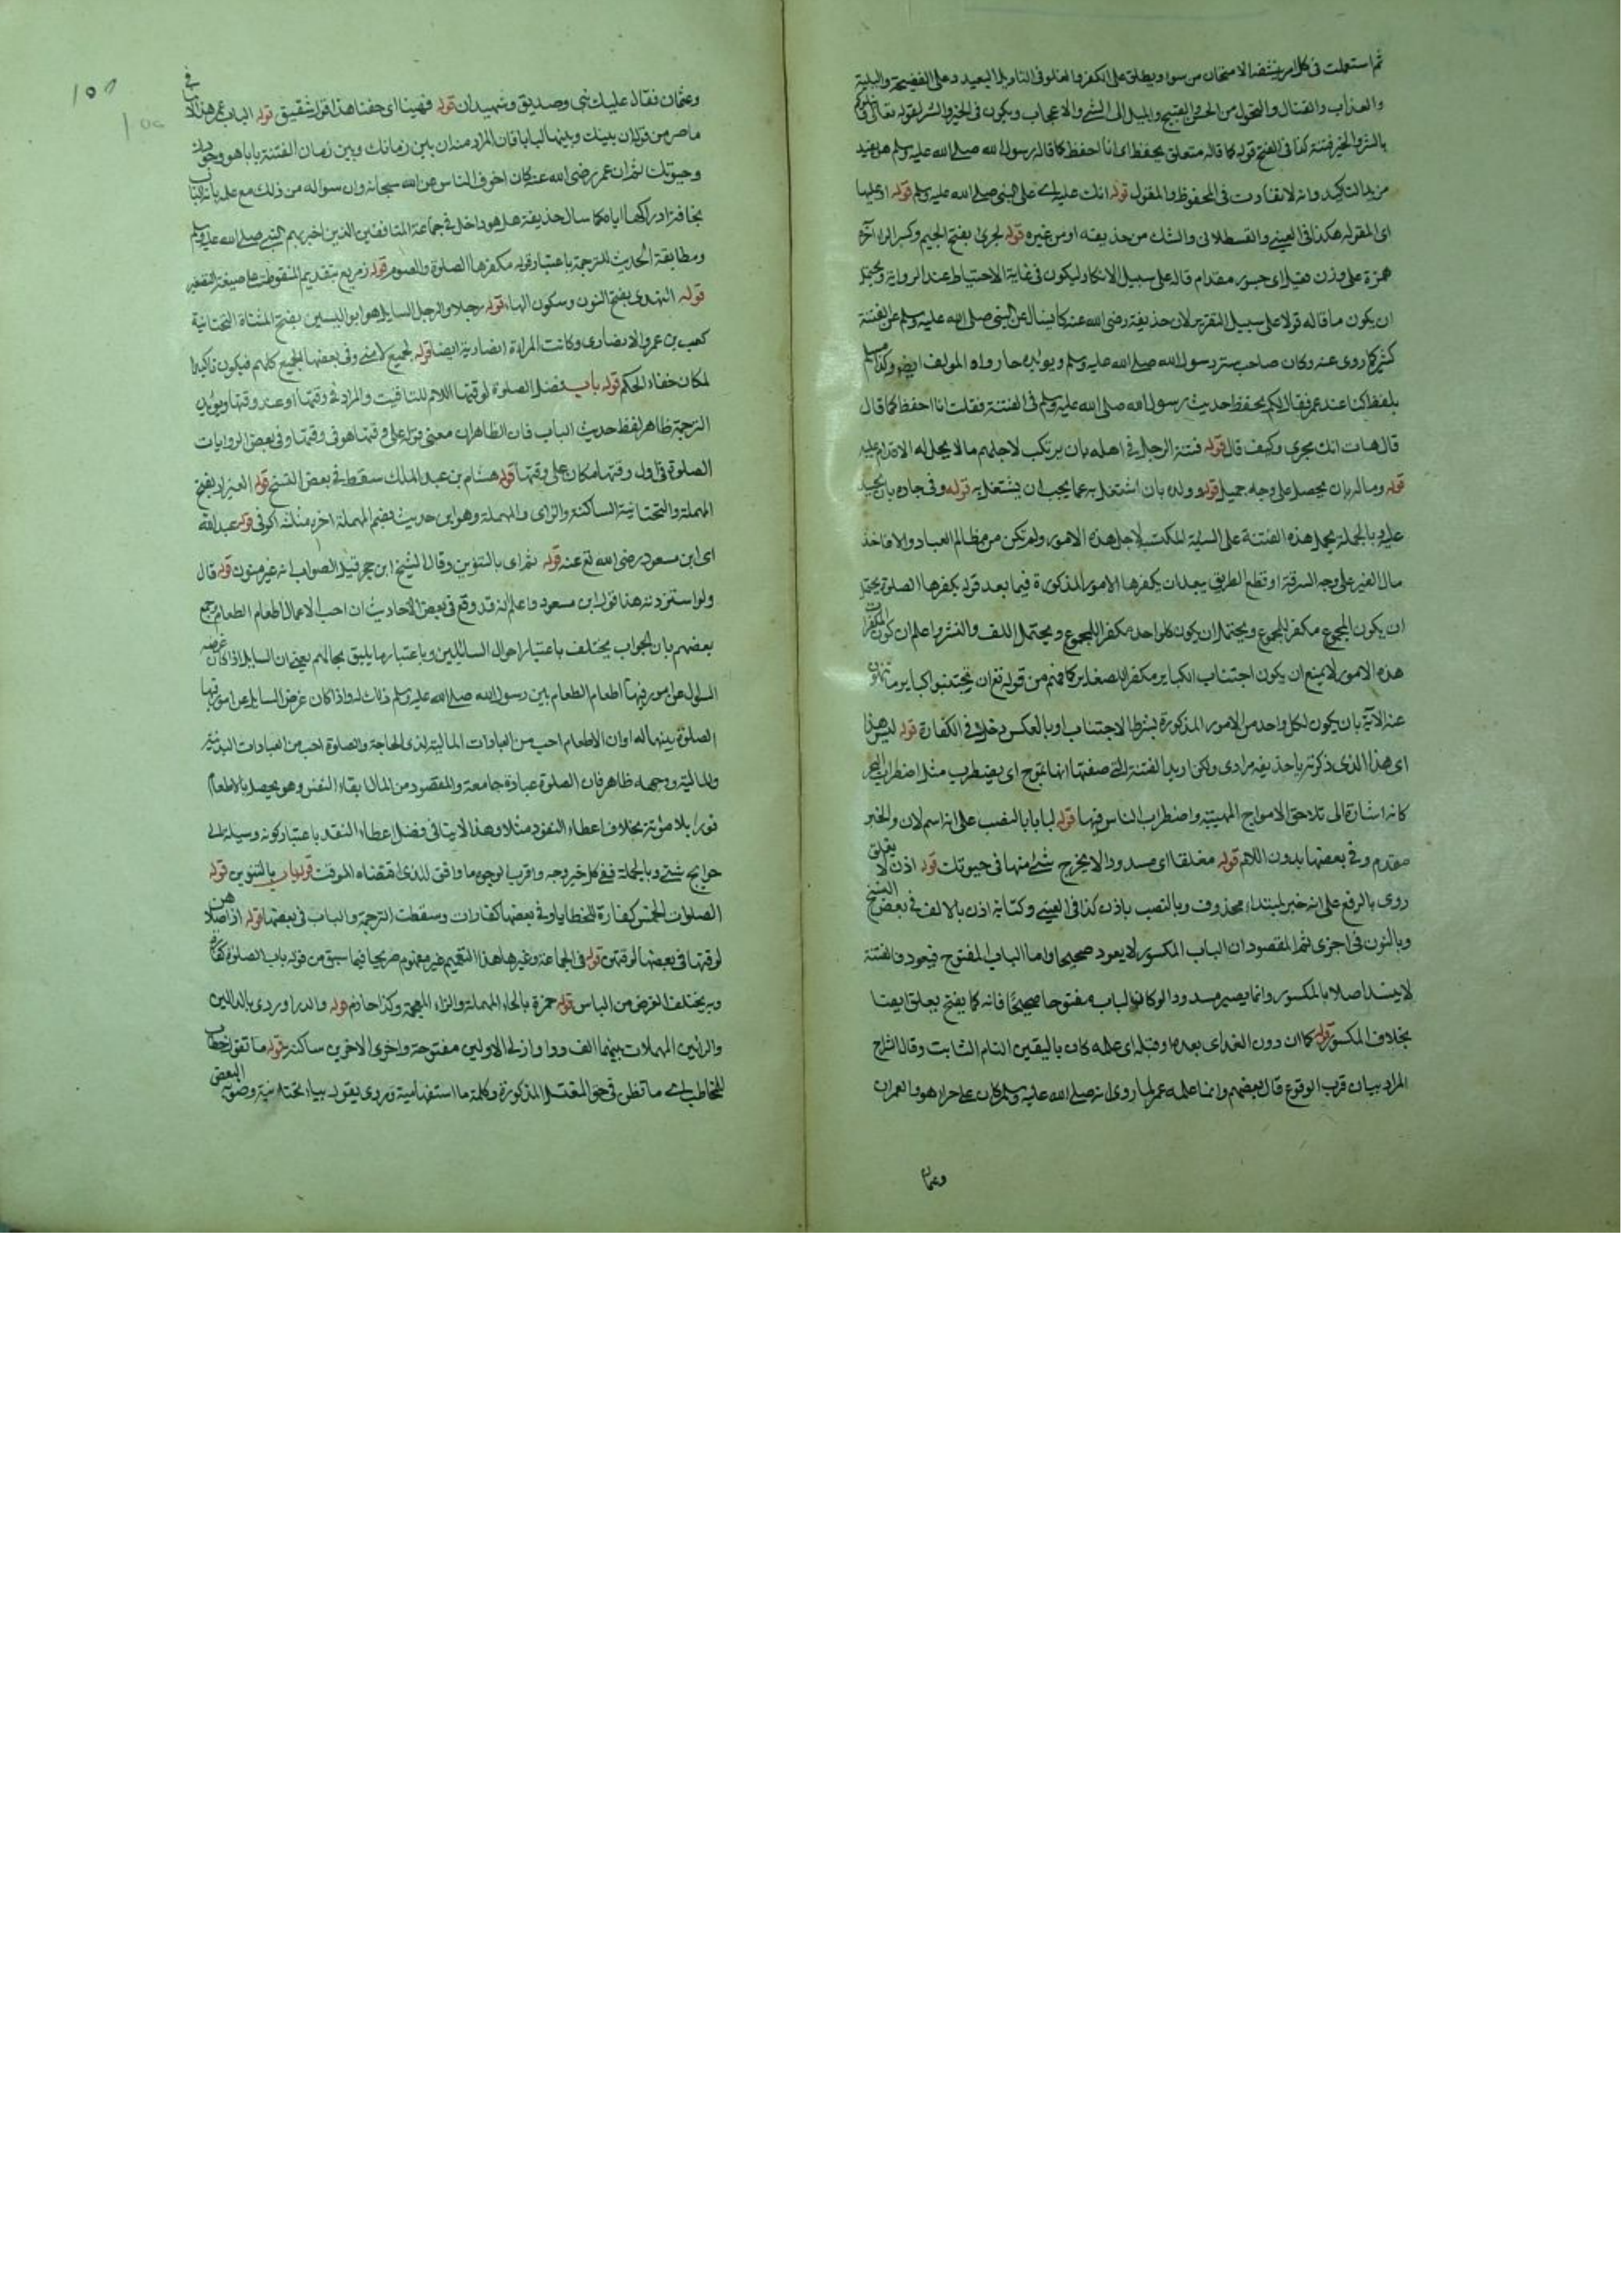 ثم استعملت في كل امر يتنفه الامتحان من سوء ويطلق على الكفر والغلو في التاويل البعيد وعلى الفضيحة والبلية
والعذاب والقتال والتحول من الحسن الى القبيح والميل الى الشئ والاعجاب ويكون في الخير والشر لقوله تعالى ونبلوكم
بالشر والخير فتنة كذا في الفتح قوله كما قاله متعلق بحفظ اي انا احفظ كما قاله رسول الله صلى الله عليه وسلم
من يد التاكيد وانه لا تفاوت في المحفوظ والمقول قوله انك عليه اي على النبي صلى الله عليه وسلم قوله او عليها
اي المقولة هكذا في العيني والقسطلاني والشك من حذيفه او من غيره قوله لجرئ بفتح الجيم وكسر الراء اخره
همزة على وزن فعيل اي جسور مقدام قاله على سبيل الانكار وليكون في غاية الاحتياط عند الرواية ويحتمل
ان يكون ما قاله قولا على سبيل التقرير لان حذيفة رضي الله عنه كان يسال عن النبي صلى الله عليه وسلم عن الفتنة
كثيرا كما روى عنه وكان صاحب ستر رسول الله صلى الله عليه وسلم ويويده ما رواه المولف ايضا وكذا مسلم
بلفظ كنا عند عمر فقال ايكم يحفظ حديث رسول الله صلى الله عليه وسلم في الفتنة فقلت انا احفظ كما قال
قال هات انك لجرئ وكيف قال قوله فتنة الرجل في اهله بان يرتكب لاجلهم ما لا يحل له الاقدام عليه
قوله وماله بان يحصل على وجه جميل قوله وولده بان اشتغل به عما يجب ان يشتغل به قوله وفي جاره بان
عليه وبالجملة يحمل هذه الفتنة على السيئة المكتسبة لاجل هذه الامور ولم تكن من مظالم العباد والا فاخذ
مال الغير على وجه السرقة او قطع الطريق يبعد ان يكفرها الامور المذكورة فيما بعد قوله يكفرها الصلوة يحتمل
ان يكون المجموع مكفرا للمجموع ويحتمل ان يكون كل واحد مكفرا للمجموع ويحتمل اللف والنشر واعلم ان كون المكفرات
هذه الامور لا يمنع ان يكون اجتناب الكباير مكفرا للصغاير كما فهم من قوله تع ان تجتنبوا كباير ما تنهون
عنه الاية بان يكون لكل واحد من الامور المذكورة بشرط الاجتناب او بالعكس دخل في الكفارة قوله ليس هذا
اي هذا الذي ذكرته يا حذيفه مرادي ولكن اريد الفتنة التي صفتها انها تموج اي يضطرب مثل اضطراب البحر
كانه اشارة الى تلاحق الامواج المهيبة واضطراب الناس فيها قوله لبابا بالنصب على انه اسم لان والخبر
مقدم وفي بعضها بدون اللام قوله مغلقا اي مسدودا لا يخرج شئ منها في حيوتك قوله اذن لا يغلق
روى بالرفع على انه خبر لمبتداء محذوف وبالنصب باذن كذا في العيني وكتابة اذن بالالف في بعض النسخ
وبالنون في اخرى ثم المقصود ان الباب المكسور لا يعود صحيحا واما الباب المفتوح فيعود فالفتنة
لا يسد اصلا بالمكسور وانما يصير مسدودا لو كان الباب مفتوحا صحيحا فانه كما يفتح يغلق ايضا
بخلاف المكسور قوله كما ان دون الغد اي بعدها وقبله اي علمه كان باليقين التام الثابت وقال الشارح
المراد بيان قرب الوقوع قال بعضهم وانما علمه عمر لما روى انه صلى الله عليه وسلم كان على حرا هو والعمران
وعثمان
وعثمان فقال عليك نبي وصديق وشهيدان قوله فهبنا اي خفنا هذا قول شقيق قوله الباب عمر هذا لا في
ما مر من قوله ان بينك وبينها لبابا فان المراد منه ان بين زمانك وبين زمان الفتنة بابا هو وجود
وحيوتك ثم ان عمر رضي الله عنه كان اخوف الناس عن الله سبحانه وان سواله من ذلك مع علمه بانه الباب
مخافة ادراكها اياه كما سال حذيفة هل هو داخل في جماعة المنافقين الذين اخبر بهم النبي صلى الله عليه وسلم
ومطابقة الحديث للترجمة باعتبار قوله مكفرها الصلوة والصوم قوله زريع بتقديم المنقوطة على صيغة التصغير
قوله النهدي بفتح النون وسكون الهاء قوله رجلا والرجل السايل هو ابو اليسر بفتح المثناة التحتانية
كعب بن عمرو الانصاري وكانت المراءة انصارية ايضا قوله لجميع امتي وفي بعضها لجميع كلهم فيكون تاكيدا
لمكان خفاء الحكم قوله باب فضل الصلوة لوقتها اللام للتاقيت والمراد في وقتها او عند وقتها ويويد
الترجمة ظاهر لفظ حديث الباب فان الظاهر ان معنى قوله على وقتها هو في وقتها وفي بعض الروايات
الصلوة في اول وقتها مكان على وقتها قوله هشام بن عبد الملك سقط في بعض النسخ قوله العيزار بفتح
المهملة والتحتانية الساكنة والزاي والمهملة وهو ابن حريث بضم المهملة اخره مثلثه الكوفي قوله عبد الله
اي ابن مسعود رضي الله تع عنه قوله ثم اي بالتنوين وقال الشيخ ابن حجر قيل الصواب انه غير منون قوله قال
ولو استزدته هذا قول ابن مسعود واعلم انه قد وقع في بعض الاحاديث ان احب الاعمال اطعام الطعام وجمع
بعضهم بان الجواب يختلف باعتبار احوال السائلين وباعتبار ما يليق بحالهم يعني ان السايل اذا كان غرضه
السوال عن امور فيها اطعام الطعام بين رسول الله صلى الله عليه وسلم ذلك له واذا كان غرض السايل عن امور فيها
الصلوة بينها له او ان الاطعام احب من العبادات المالية لذي الحاجة والصلوة احب من العبادات البدنية
والمالية وجهه ظاهر فان الصلوة عبادة جامعة والمقصود من المال ابقاء النفس وهو يحصل بالاطعام
فورا بلا مؤنة بخلاف اعطاء النقود مثلا وهذا لا ينافي فضل اعطاء النقد باعتبار كونه وسيلة الى
حوايج شتى وبالجملة ففي كل خير وجه واقرب الوجوه ما وافق للذي اقتضاه الوقت قوله باب بالتنوين قوله
الصلوات الخمس كفارة للخطايا وفي بعضها كفارات وسقطت الترجمة والباب في بعضها قوله اذا صلاهن
لوقتها في بعضها لوقتهن قوله في الجماعة وغيرها هذا التعميم غير مفهوم صريحا فيما سبق من قوله باب الصلوة كفارة
وبه يختلف الغرض من الباس قوله حمزة بالحاء المهملة والزاء المعجمة وكذا حازم قوله والدراوردي بالدالين
والرائين المهملات بينهما الف وواو الاوليين مفتوحة واخرى الاخرين ساكنة قوله ما تقول خطاب
للمخاطب اي ما تظن في حق المغتسل المذكورة وكلمة ما استفهامية وروى يقول بياء تحتانية وصوبه البعض